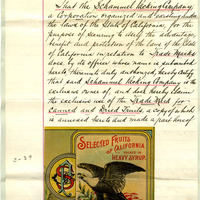 That the Schammel Packing Company
a Corporation organized and existing under
the laws of the State of California, for the
purpose of securing to itself the advantage,
benefit and protection of the laws of the State
of California in relation to Trade Marks
does, by its officer whose name is
hereto thereunto duly authorized, hereby certify
that said Schammel Packing Company is the
exclusive owner of, and does hereby claim
the exclusive use of the Trade Mark for
Canned and Dried Fruits, a copy of which
is annexed hereto and made a part hereof
SELECTED FRUITS
of CALIFORNIA
PACKED IN
HEAVY SYRUP.